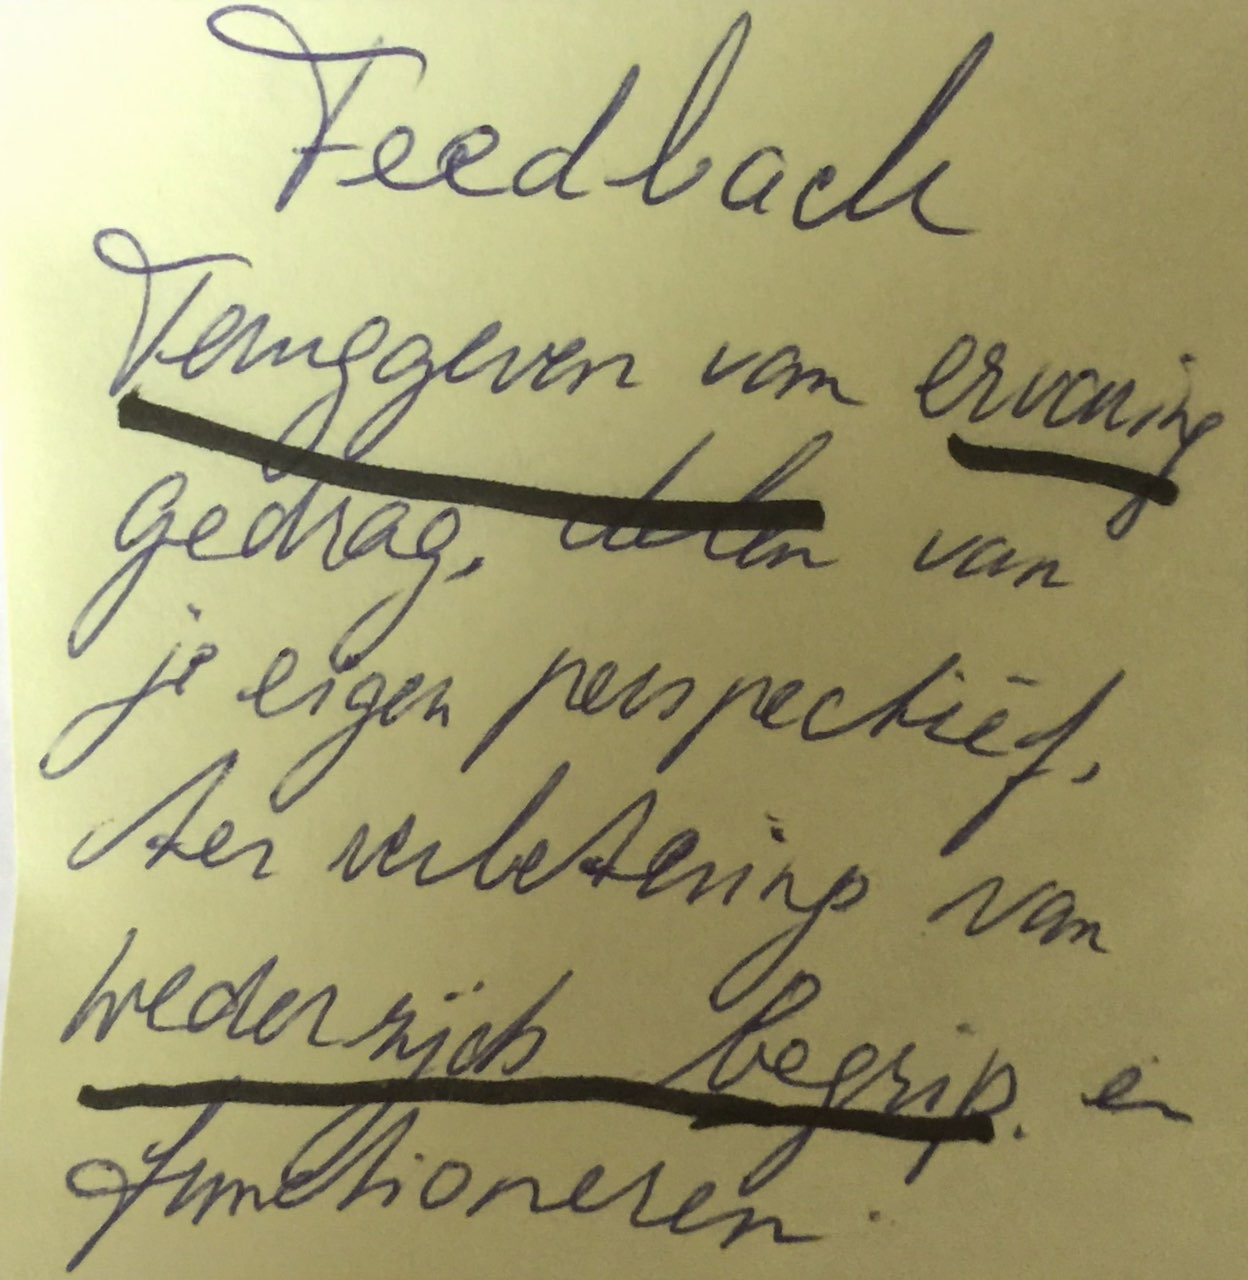 Feedback
Teruggeven van ervaring
gedrag, delen van
je eigen perspectief,
ter verbetering van
wederzijds begrip. en
functioneren.